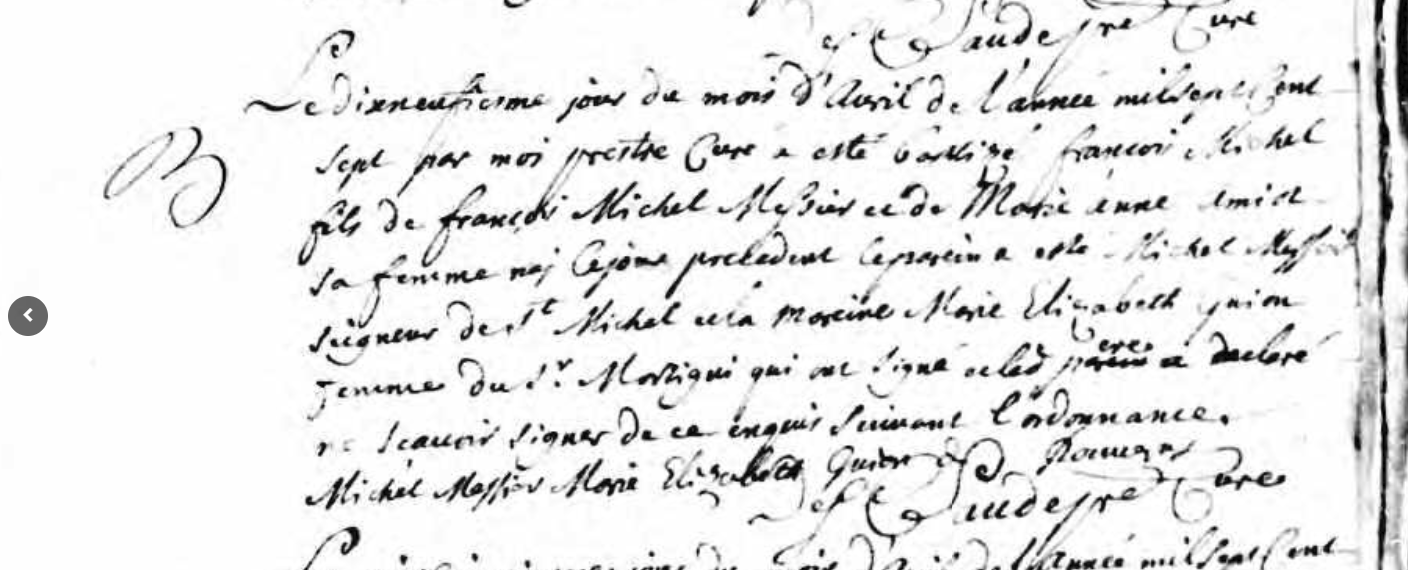 Cure
Le dixneufiesme jour du mois d'Avril de l'année mil sept Cent
B
sept par moi prestre Curé a esté baptizé françois Michel
fils de françois Michel Messier et de Marie anne amiot
sa femme naj le jour precedent le parein a esté Michel Messier
seigneur de St Michel et la mareine Marie Elizabeth Guion
femme du Sr Martigni qui ont signé et led pere a declaré
ne scavoir signer de ce enquis suivant l'ordonnance.
Michel Messier Marie Elizabeth Guion
Curé
jour du mois d'Avril de l'année mil sept Cent